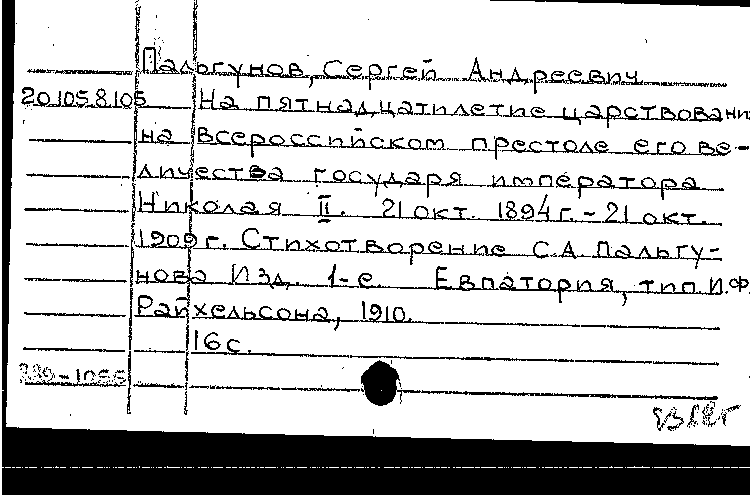 Пальгунов, Сергей Андреевич
20.105.8.105 На пятнадцатилетие царствовани
на Всероссийском престоле его ве-
личества государя императора
Николая II. 21 окт. 1894 г. - 21 окт.
1909 г. Стихотворение С.А. Пальгу-
нова Изд. 1-е. Евпатория, тип. И.Ф.
Райхельсона, 1910.
16 с.